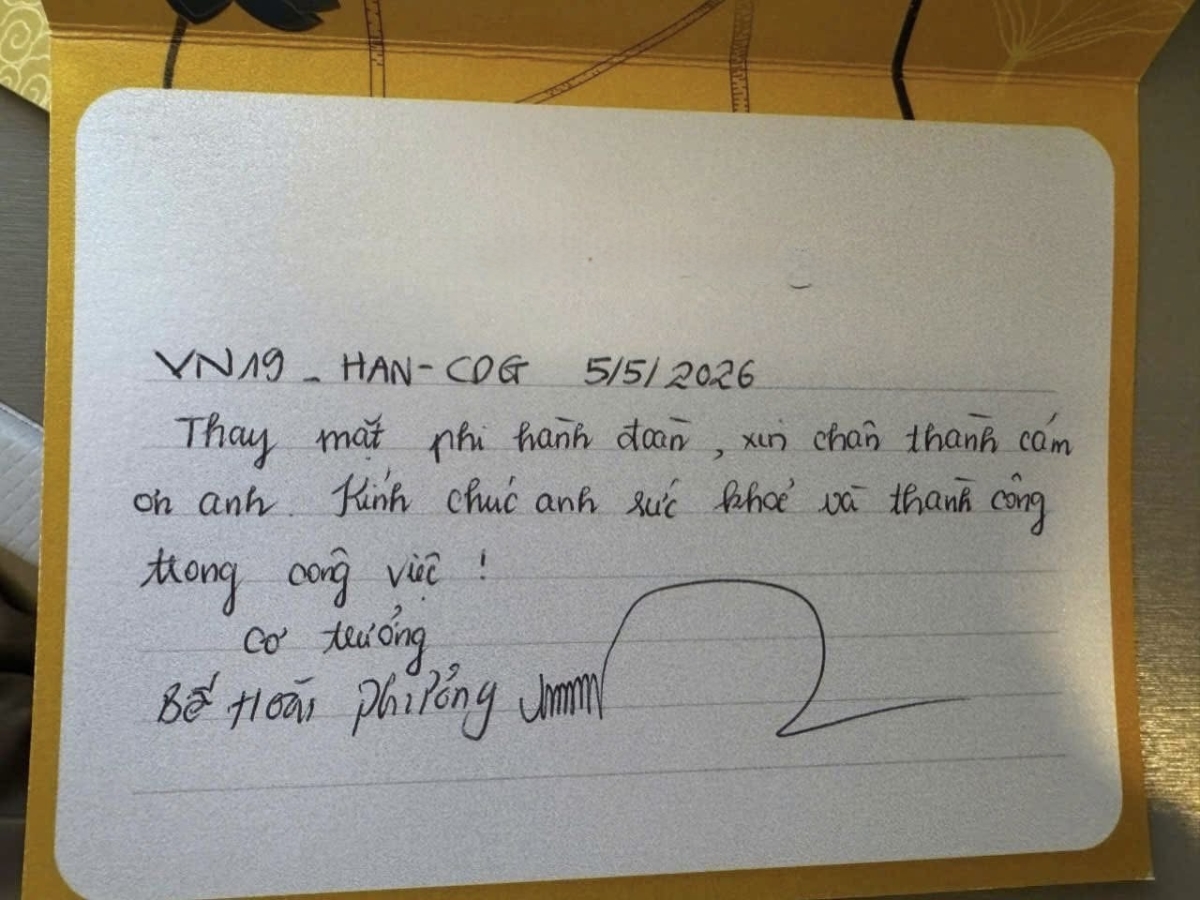 VN19 - HAN-CDG 5/5/2026
Thay mặt phi hành đoàn, xin chân thành cám
ơn anh. Kính chúc anh sức khoẻ và thành công
trong công việc!
Cơ trưởng
Bế Hoài Phương